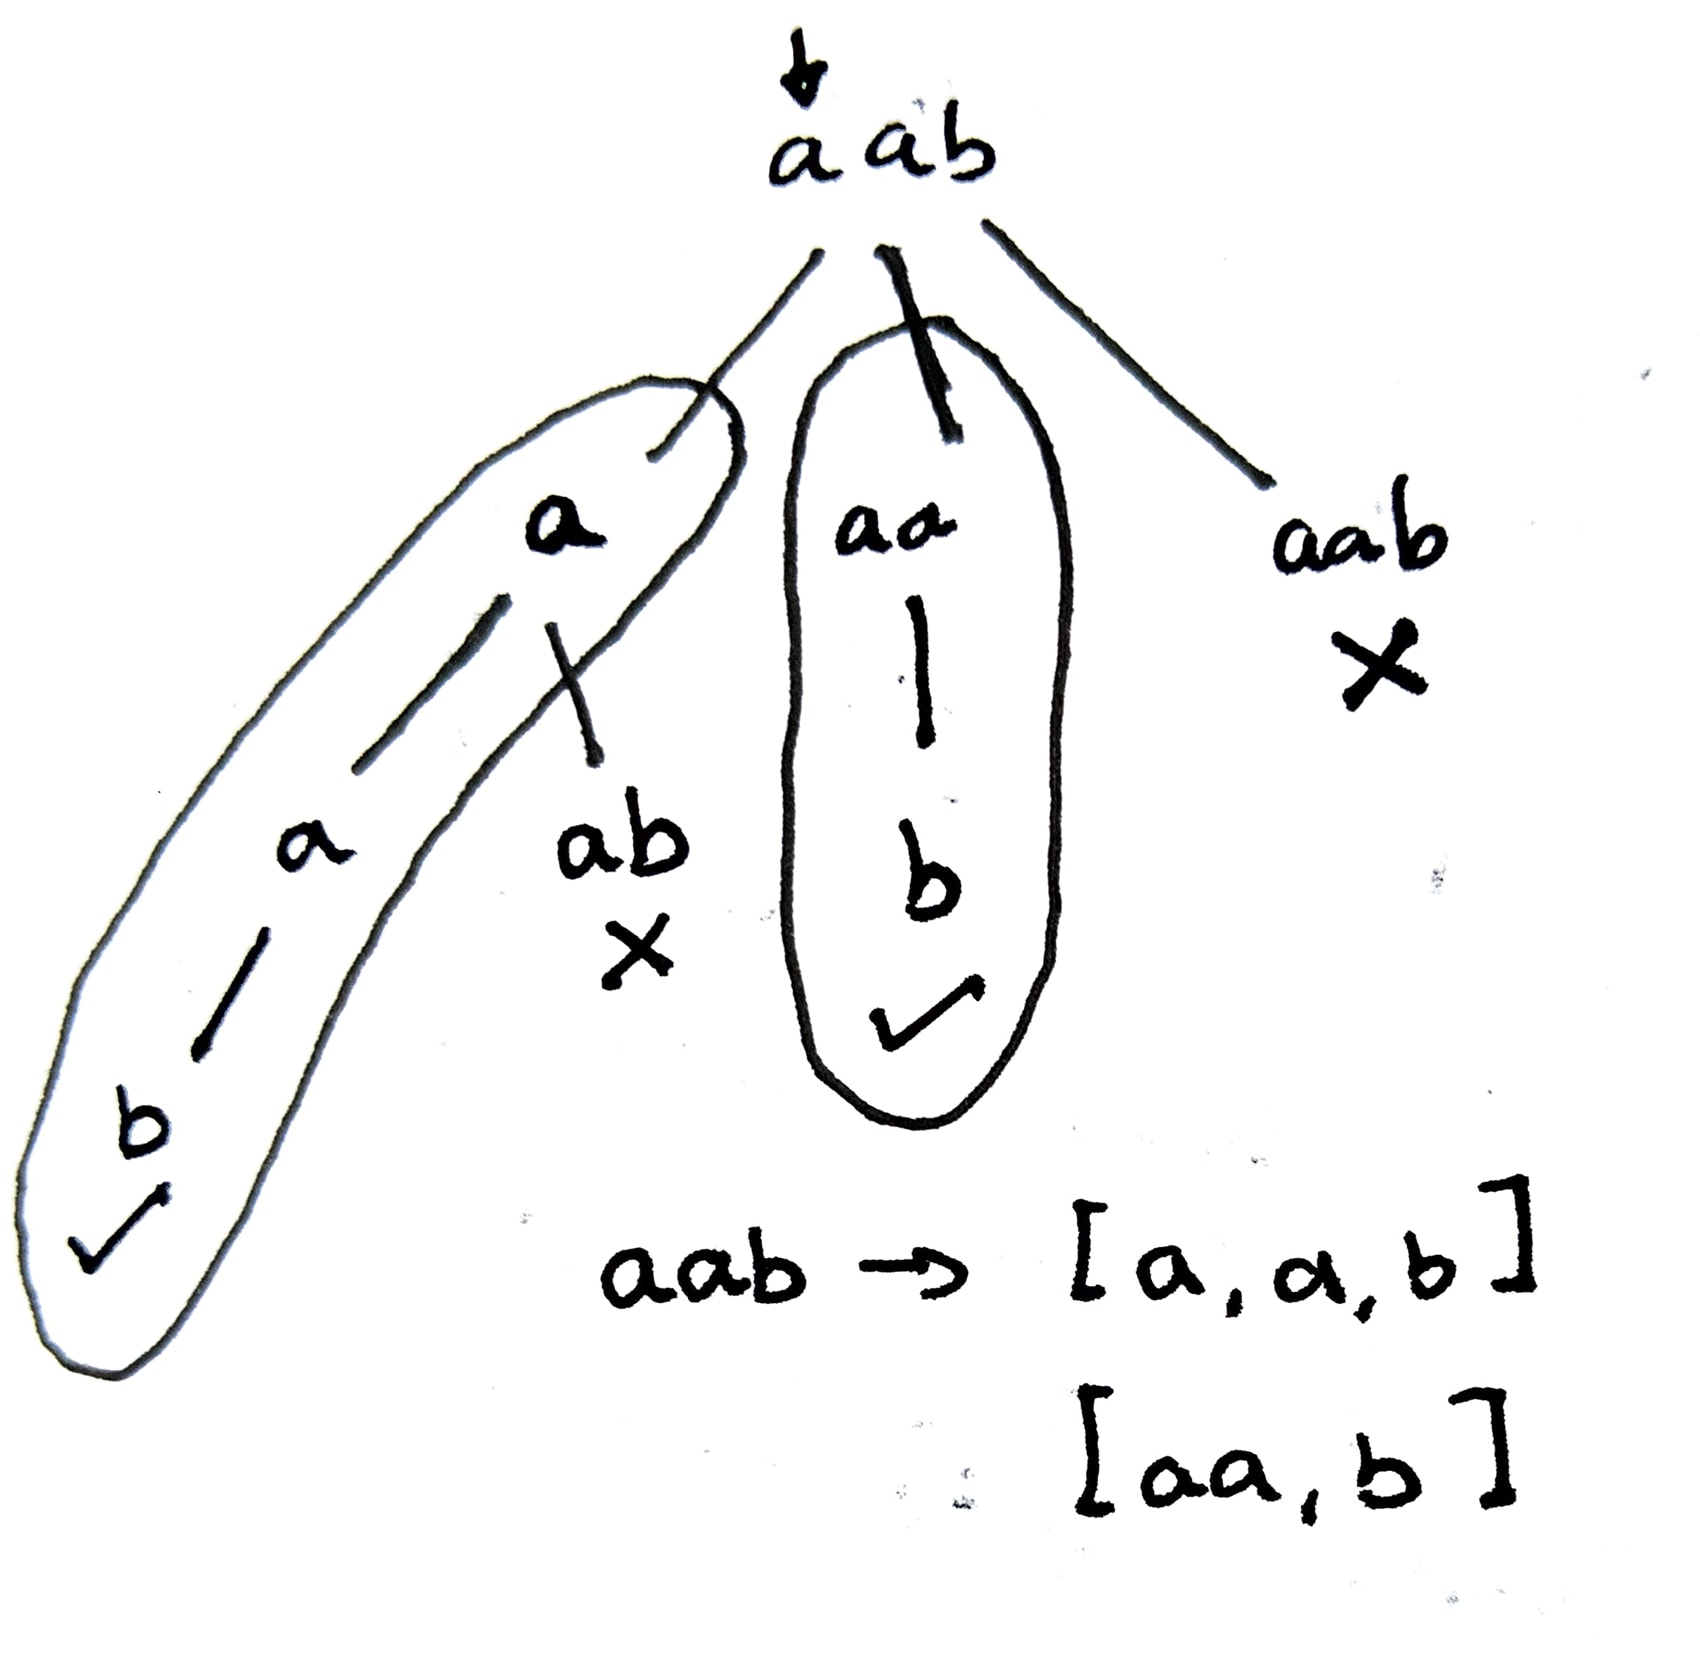 aab
a aa aab
a ab b
b
aab → [a, a, b]
[aa, b]